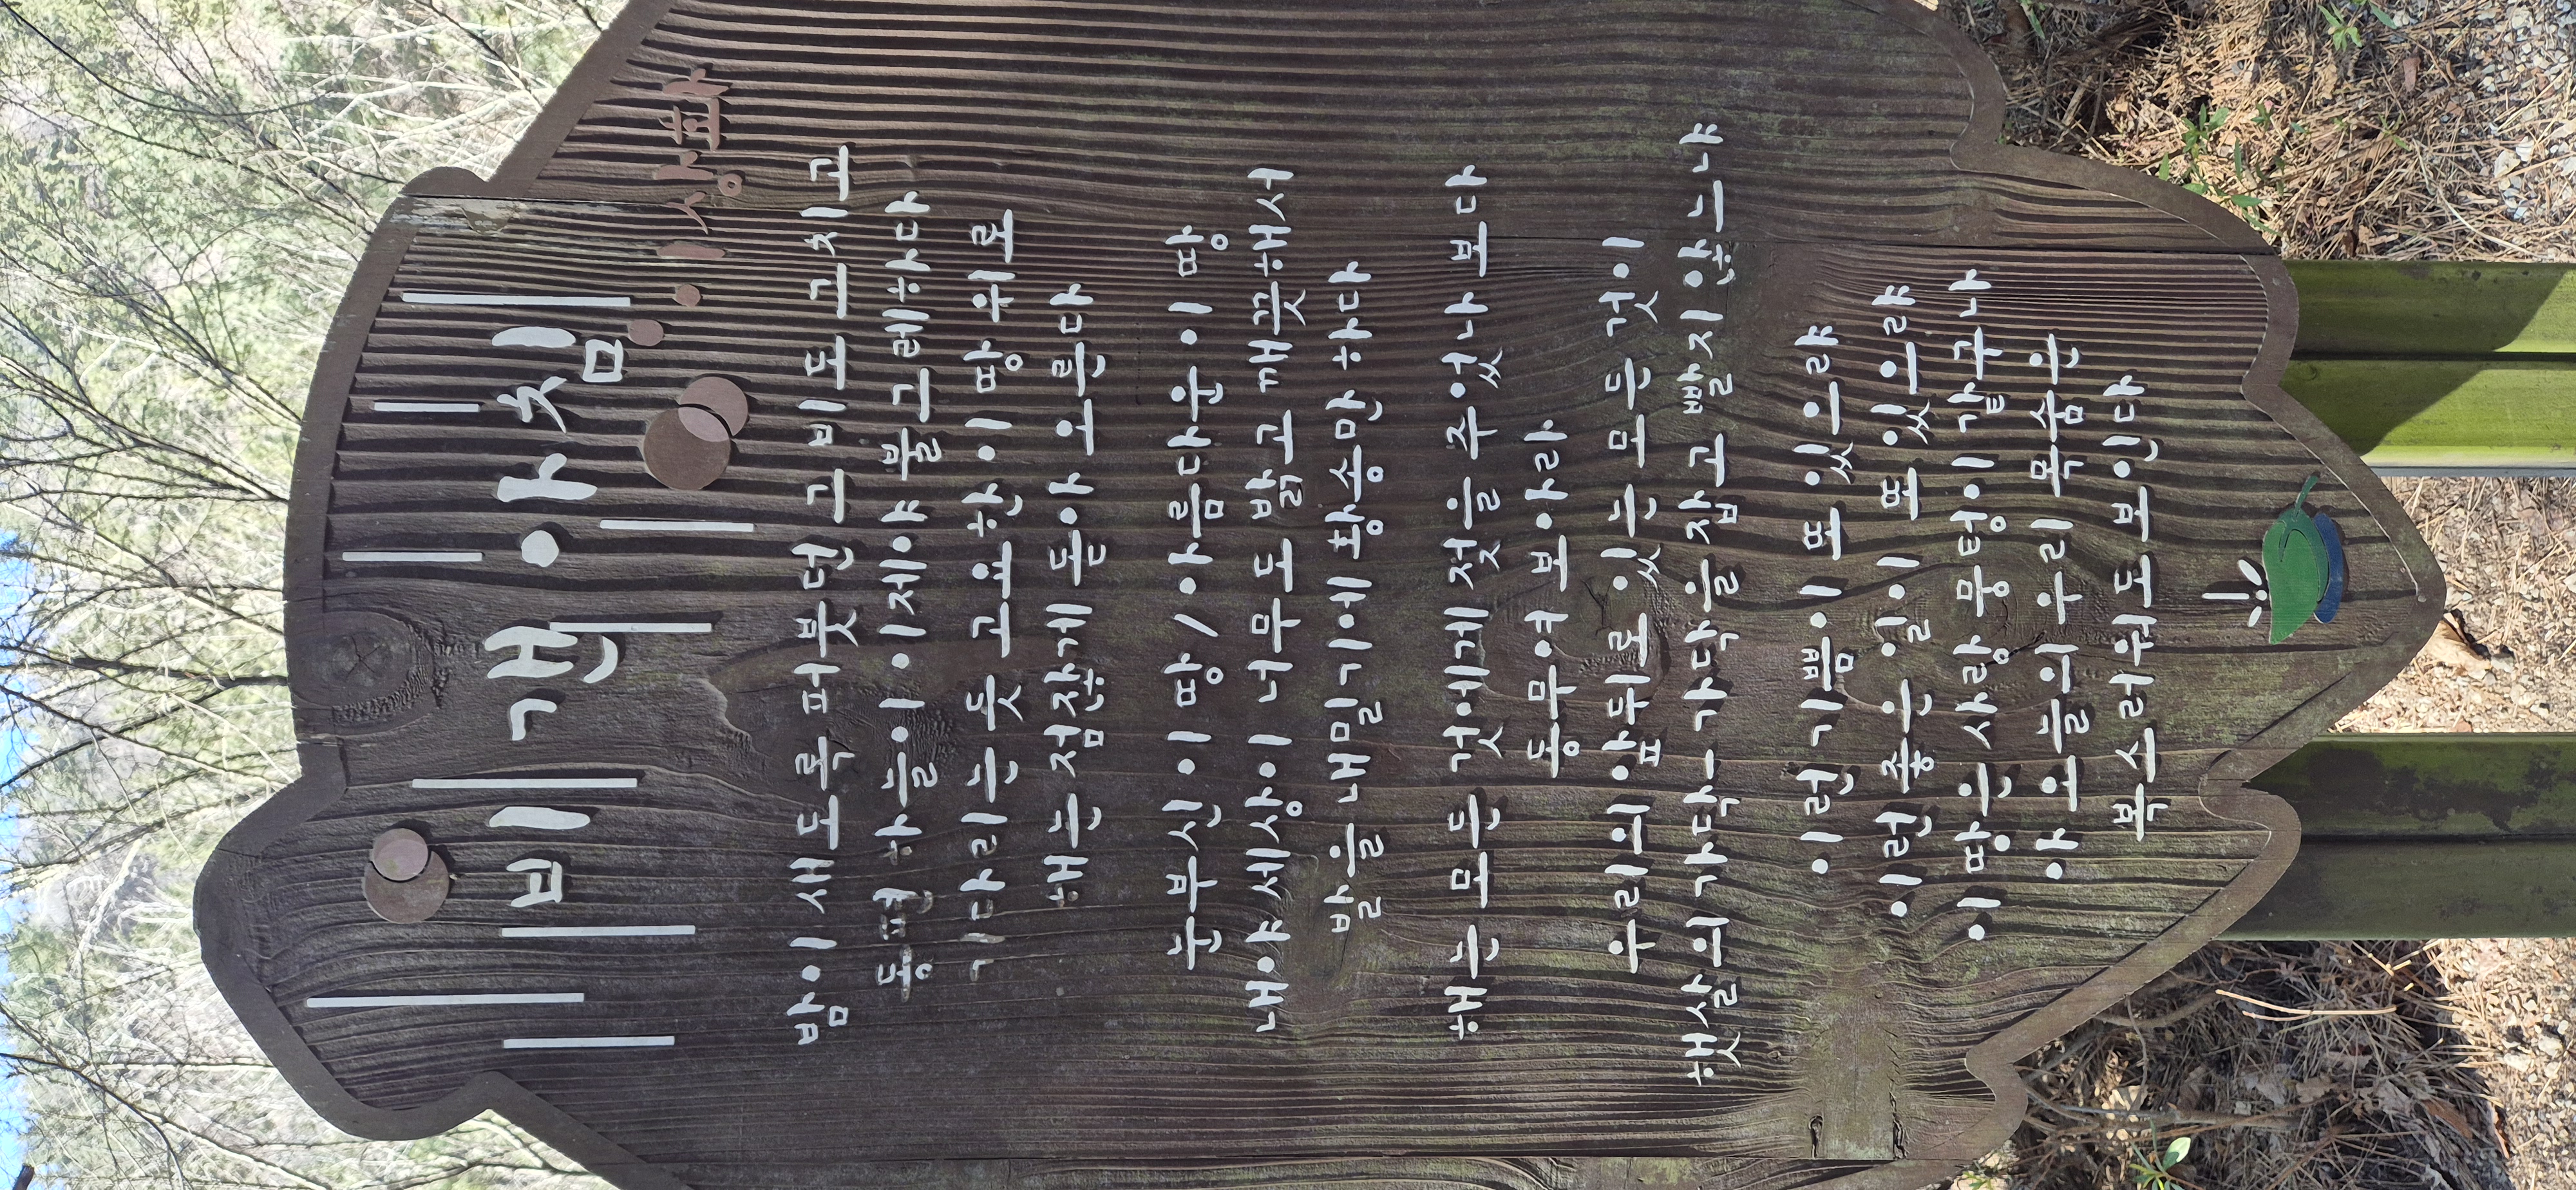 비 갠 아침
이상화
밤이 새도록 퍼붓던 그 비도 그치고
동편 하늘이 이제야 불그레하다
기다리는 듯 고요한 이 땅 위로
해는 점잖게 돋아 오른다
눈부신 이 땅 / 아름다운 이 땅
내야 세상이 너무도 밝고 깨끗해서
발을 내밀기에 황송만 하다
해는 모든 것에게 젖을 주었나 보다
동무여 보아라
우리의 앞뒤로 있는 모든 것이
햇살의 가닥- 가닥을 잡고 빨지 않느냐
이런 기쁨이 또 있으랴
이런 좋은 일이 또 있으랴
이 땅은 사랑 뭉텅이 같구나
아 오늘의 우리 목숨은
복스러워도 보인다